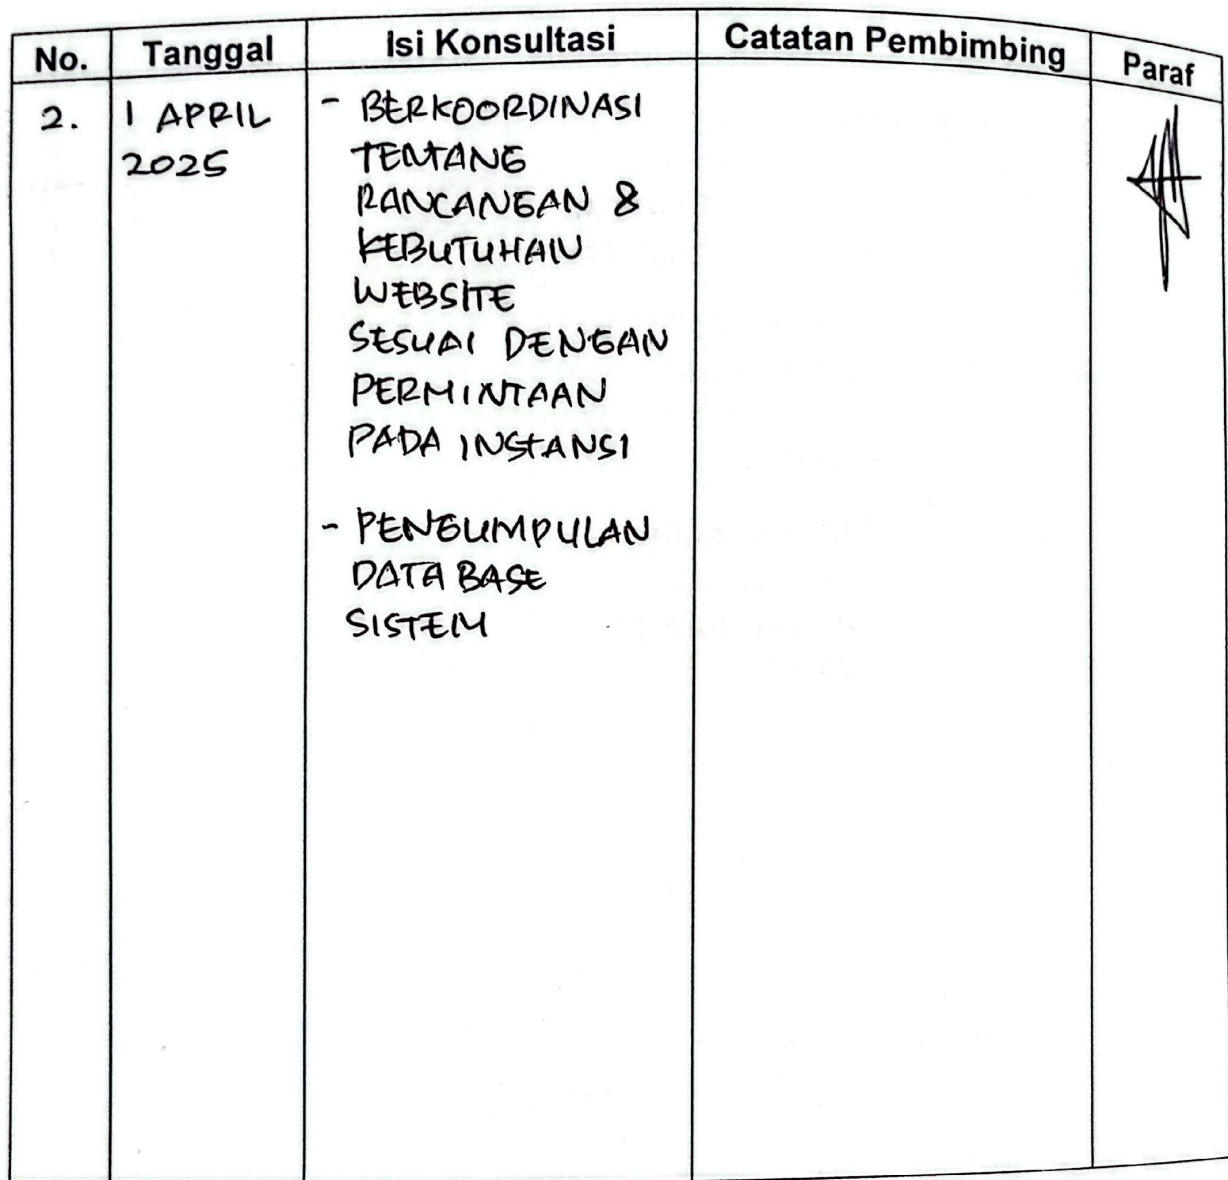 No. Tanggal Isi Konsultasi Catatan Pembimbing Paraf
2. 1 APRIL - BERKOORDINASI
2025 TENTANG
RANCANGAN &
KEBUTUHAN
WEBSITE
SESUAI DENGAN
PERMINTAAN
PADA INSTANSI
- PENGUMPULAN
DATA BASE
SISTEM